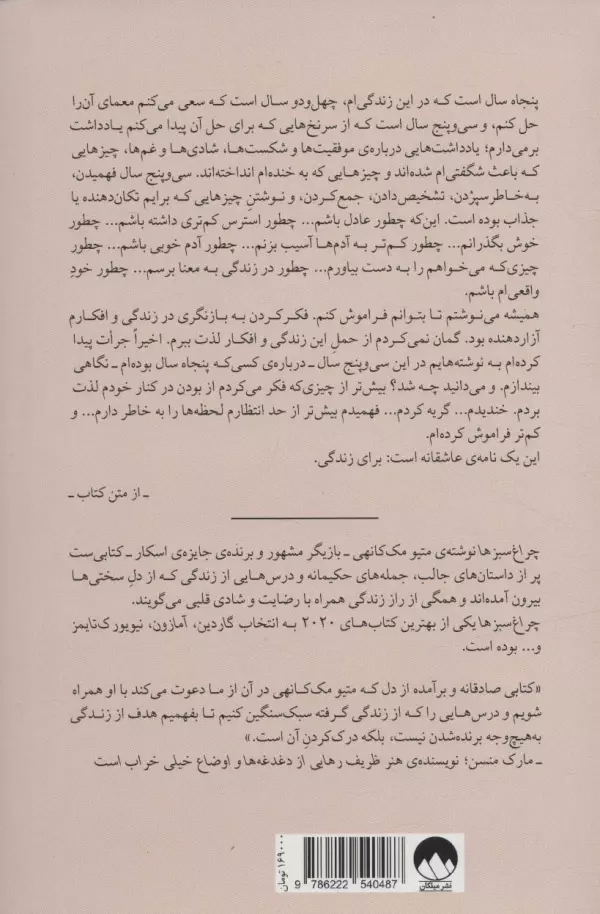 پنجاه سال است که در این زندگی‌ام، چهل‌ودو سال است که سعی می‌کنم معمای آن‌را
حل کنم، و سی‌وپنج سال است که از سرنخ‌هایی که برای حل آن پیدا می‌کنم یادداشت
برمی‌دارم؛ یادداشت‌هایی درباره‌ی موفقیت‌ها و شکست‌ها، شادی‌ها و غم‌ها، چیزهایی
که باعث شگفتی‌ام شده‌اند و چیزهایی که به خنده‌ام انداخته‌اند. سی‌وپنج سال فهمیدن،
به‌خاطرسپردن، تشخیص‌دادن، جمع‌کردن، و نوشتنِ چیزهایی که برایم تکان‌دهنده یا
جذاب بوده است. این‌که چطور عادل باشم... چطور استرس کم‌تری داشته باشم... چطور
خوش بگذرانم... چطور کم‌تر به آدم‌ها آسیب بزنم... چطور آدم خوبی باشم... چطور
چیزی‌که می‌خواهم را به دست بیاورم... چطور در زندگی به معنا برسم... چطور خودِ
واقعی‌ام باشم.
همیشه می‌نوشتم تا بتوانم فراموش کنم. فکرکردن به بازنگری در زندگی و افکارم
آزاردهنده بود. گمان نمی‌کردم از حملِ این زندگی و افکار لذت ببرم. اخیراً جرأت پیدا
کرده‌ام به نوشته‌هایم در این سی‌وپنج سال ـ درباره‌ی کسی‌که پنجاه سال بوده‌ام ـ نگاهی
بیندازم. و می‌دانید چه شد؟ بیش‌تر از چیزی‌که فکر می‌کردم از بودن در کنار خودم لذت
بردم. خندیدم... گریه کردم... فهمیدم بیش‌تر از حد انتظارم لحظه‌ها را به خاطر دارم... و
کم‌تر فراموش کرده‌ام.
این یک نامه‌ی عاشقانه است: برای زندگی.
ـ از متن کتاب ـ
چراغ‌سبزها نوشته‌ی متیو مک‌کانهی ـ بازیگر مشهور و برنده‌ی جایزه‌ی اسکار ـ کتابی‌ست
پر از داستان‌های جالب، جمله‌های حکیمانه و درس‌هایی از زندگی که از دلِ سختی‌ها
بیرون آمده‌اند و همگی از راز زندگی همراه با رضایت و شادی قلبی می‌گویند.
چراغ‌سبزها یکی از بهترین کتاب‌های ۲۰۲۰ به انتخاب گاردین، آمازون، نیویورک‌تایمز
و... بوده است.
«کتابی صادقانه و برآمده از دل که متیو مک‌کانهی در آن از ما دعوت می‌کند با او همراه
شویم و درس‌هایی را که از زندگی گرفته سبک‌سنگین کنیم تا بفهمیم هدف از زندگی
به‌هیچ‌وجه برنده‌شدن نیست، بلکه درک‌کردنِ آن است.»
ـ مارک منسن؛ نویسنده‌ی هنر ظریف رهایی از دغدغه‌ها و اوضاع خیلی خراب است
۱۶۹۰۰۰ تومان
9 786222 540487
نشر میلکان